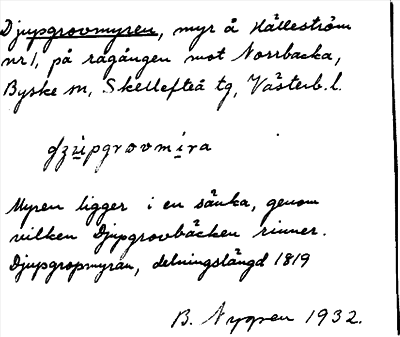 Djupgrovmyren, myr å Hälleström
nr 1, på rågången mot Norrbacka,
Byske sn, Skellefteå tg, Västerb. l.
dzùpgrovmìra
Myren ligger i en sänka, genom
vilken Djupgrovbäcken rinner.
Djupgropmyran, delningslängd 1819
B. Nygren 1932.